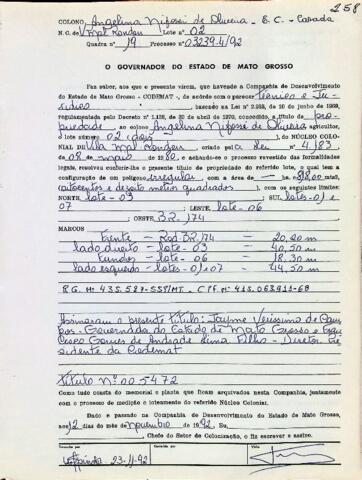 258
COLONO Angelina Nifossi de Oliveira - E. C. - Casada
N. C. de V. Mal Rondon Lote nº 02
Quadra nº 19 Processo nº 03239.4/92
O GOVERNADOR DO ESTADO DE MATO GROSSO
Faz saber, aos que a presente virem, que havendo a Companhia de Desenvolvimento
do Estado de Mato Grosso - CODEMAT -, de acordo com o parecer Técnico e Ju-
rídico baseado na Lei 2.938, de 10 de junho de 1969,
regulamentada pelo Decreto nº 1.138, de 30 de abril de 1970, concedido, a título de pro-
priedade, ao colono Angelina Nifossi de Oliveira agricultor,
o lote número 02 (dois) do NÚCLEO COLO-
NIAL DE Vila Mal Rondon criado pela Lei nº 4.183
de 08 de maio 1980, e achando-se o processo revestido das formalidades
legais, resolveu conferir-lhe o presente título de propriedade do referido lote, o qual tem a
configuração de um polígono irregular com a área de 818,00 mts²,
(oitocentos e dezoito metros quadrados), com os seguintes limites:
NORTE lote - 03 SUL lotes - 01 e
07 LESTE lote - 06
OESTE BR. 174
MARCOS
Frente - Rod. BR. 174 - 20,20 m
lado direito - lote - 03 - 40,50 m
Fundos - lote - 06 - 18,30 m
lado esquerdo - lotes - 01 e 07 - 44,50 m
R.G. Nº 435.527-SSP/MT. CPF. Nº 415.063.811-68
Assinaram o presente título: Jayme Veríssimo de Cam
pos - Governador do Estado de Mato Grosso e
Gomes de Andrade Lima Filho - Diretor Pre
sidente da Codemat
Título Nº 005472
Como tudo consta do memorial e planta que ficam arquivados nesta Companhia, juntamente
com o processo de medição e loteamento do referido Núcleo Colonial.
Dado e passado na Companhia de Desenvolvimento do Estado de Mato Grosso,
aos 12 dias do mês de novembro de 1992. Eu,
Chefe do Setor de Colonização, o fiz escrever e assino.
Lavrado por
Conferido
Visto
23-11-92